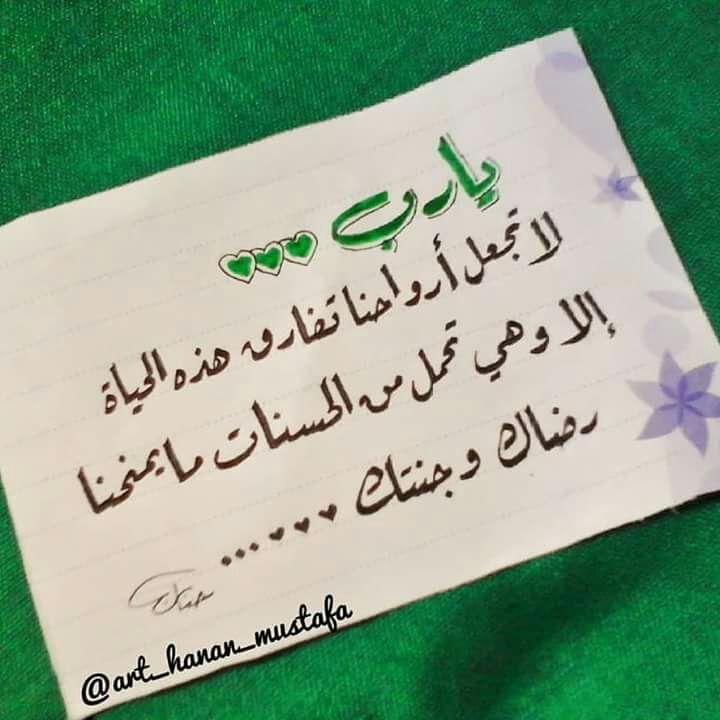 يارب 💚💚💚
لا تجعل أرواحنا تفارق هذه الحياة
إلا وهي تحمل من الحسنات ما يمنحنا
رضاك وجنتك ♥♥♥...
حنان
@art_hanan_mustafa